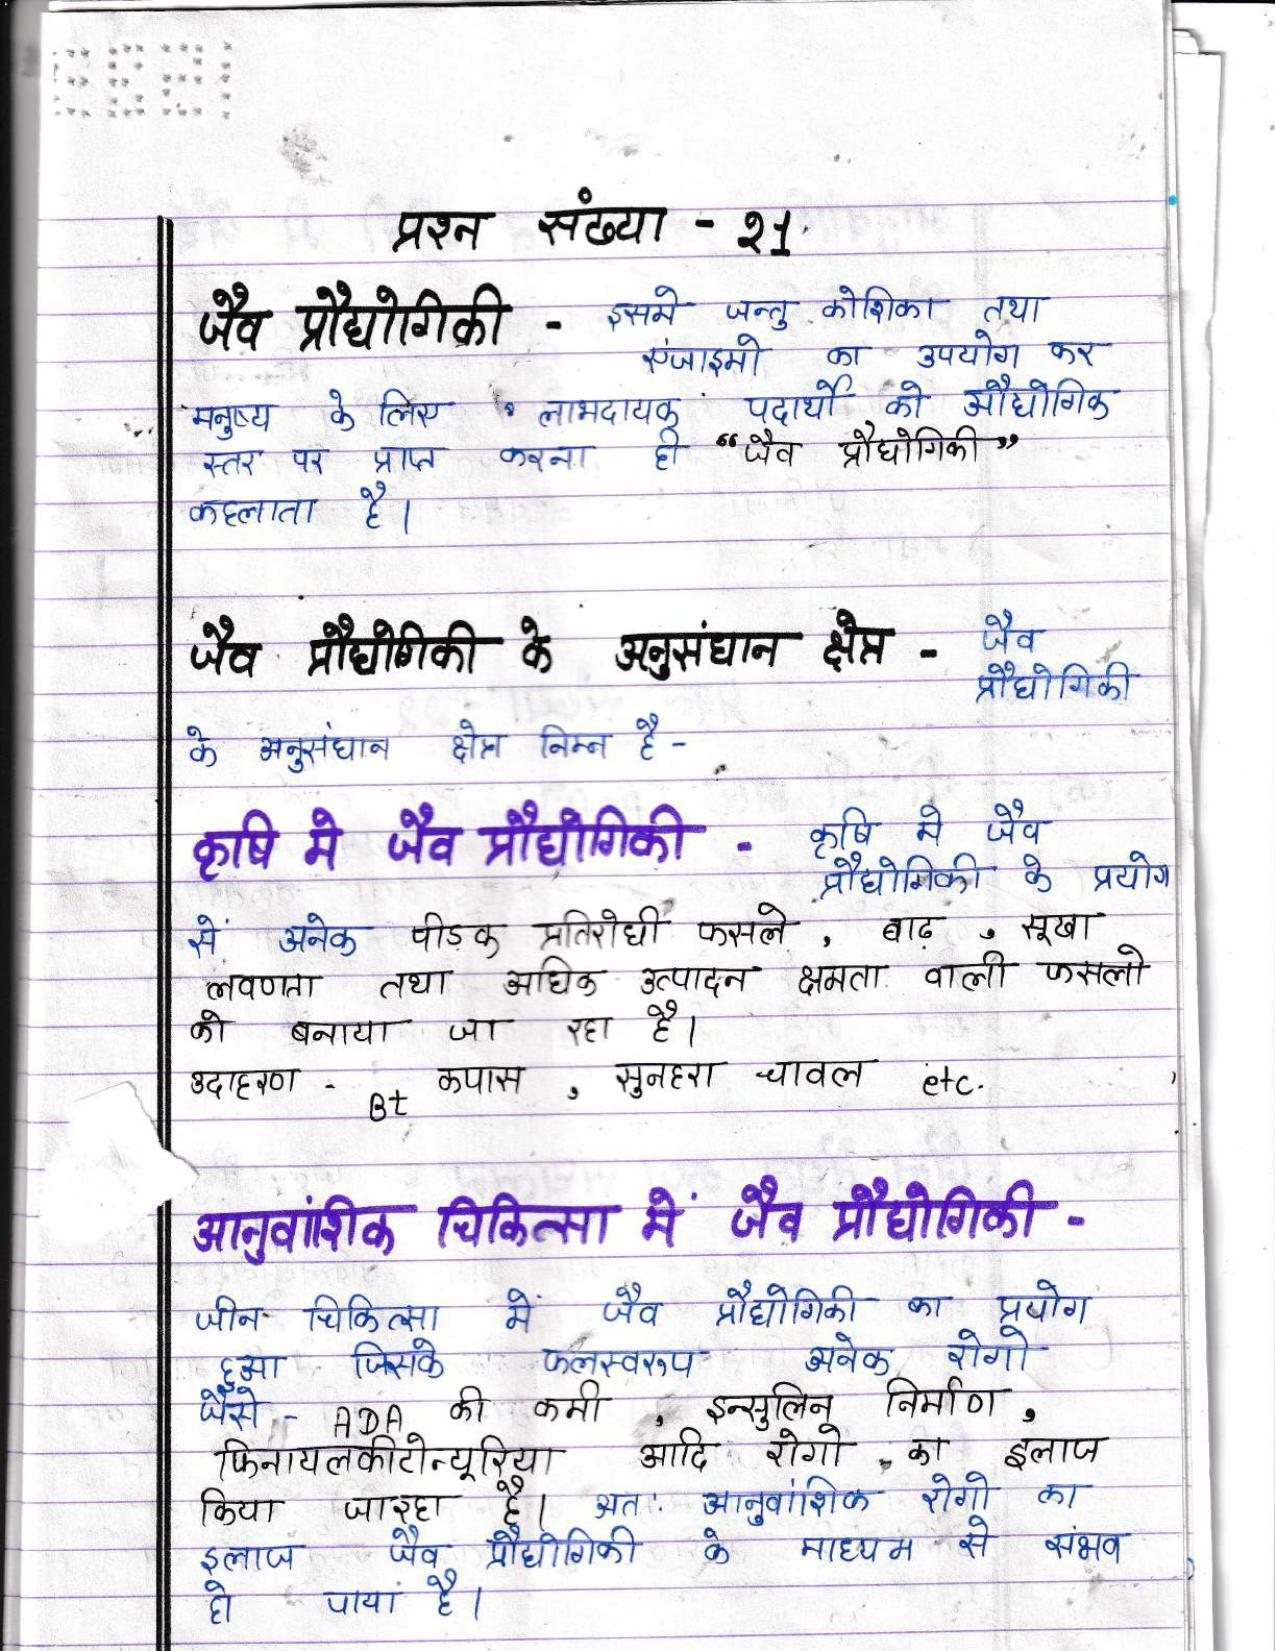 प्रश्न संख्या - 21.
जैव प्रौद्योगिकी - इसमे जन्तु कोशिका तथा
एंजाइमो का उपयोग कर
मनुष्य के लिए लाभदायक पदार्थो को औद्योगिक
स्तर पर प्राप्त करना ही "जैव प्रौद्योगिकी"
कहलाता है।
जैव प्रौद्योगिकी के अनुसंधान क्षेत्र - जैव
प्रौद्योगिकी
के अनुसंधान क्षेत्र निम्न है -
कृषि मे जैव प्रौद्योगिकी - कृषि मे जैव
प्रौद्योगिकी के प्रयोग
से अनेक पीड़क प्रतिरोधी फसले , बाढ़ , सूखा
लवणता तथा अधिक उत्पादन क्षमता वाली फसलो
को बनाया जा रहा है।
उदाहरण - Bt कपास , सुनहरा चावल etc.
आनुवांशिक चिकित्सा में जैव प्रौद्योगिकी -
जीन चिकित्सा में जैव प्रौद्योगिकी का प्रयोग
हुआ जिसके फलस्वरूप अनेक रोगो
जैसे - ADA की कमी , इन्सुलिन निर्माण ,
फिनायलकीटोन्यूरिया आदि रोगो का इलाज
किया जा रहा है। अतः आनुवांशिक रोगो का
इलाज जैव प्रौद्योगिकी के माध्यम से संभव
हो पाया है।